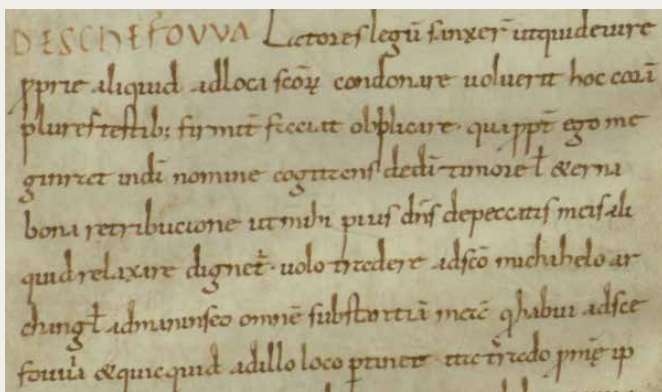 DESCHEFOVVA Latores legū sanxer̄ ut qui de iure
ꝓprie aliquid ad loca scōꝝ condonare uoluerit hoc corā
plures testib; firmit̄ faciat obplicare · quapp̄t ego me
ginrat in dī nomine cogitans dei timore ł &erna
bona retribucione ut mihi pius dn̄s de peccatis meis ali
quid relaxare dignet̄ · uolo tradere ad scō michahelo ar
changł ad maninseo omnē substantiā meā q habui ad sce
fouua & quicquid ad illo loco ꝑtinet ip